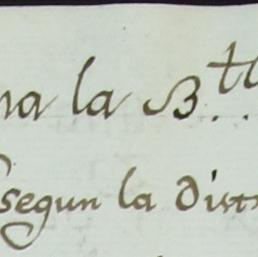 na la B.ta
segun la Dist